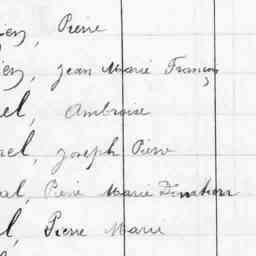 ien, Pierre
ien, Jean Marie François
el, Ambroise
el, Joseph Pierre
al, Pierre Marie
l, Pierre Marie